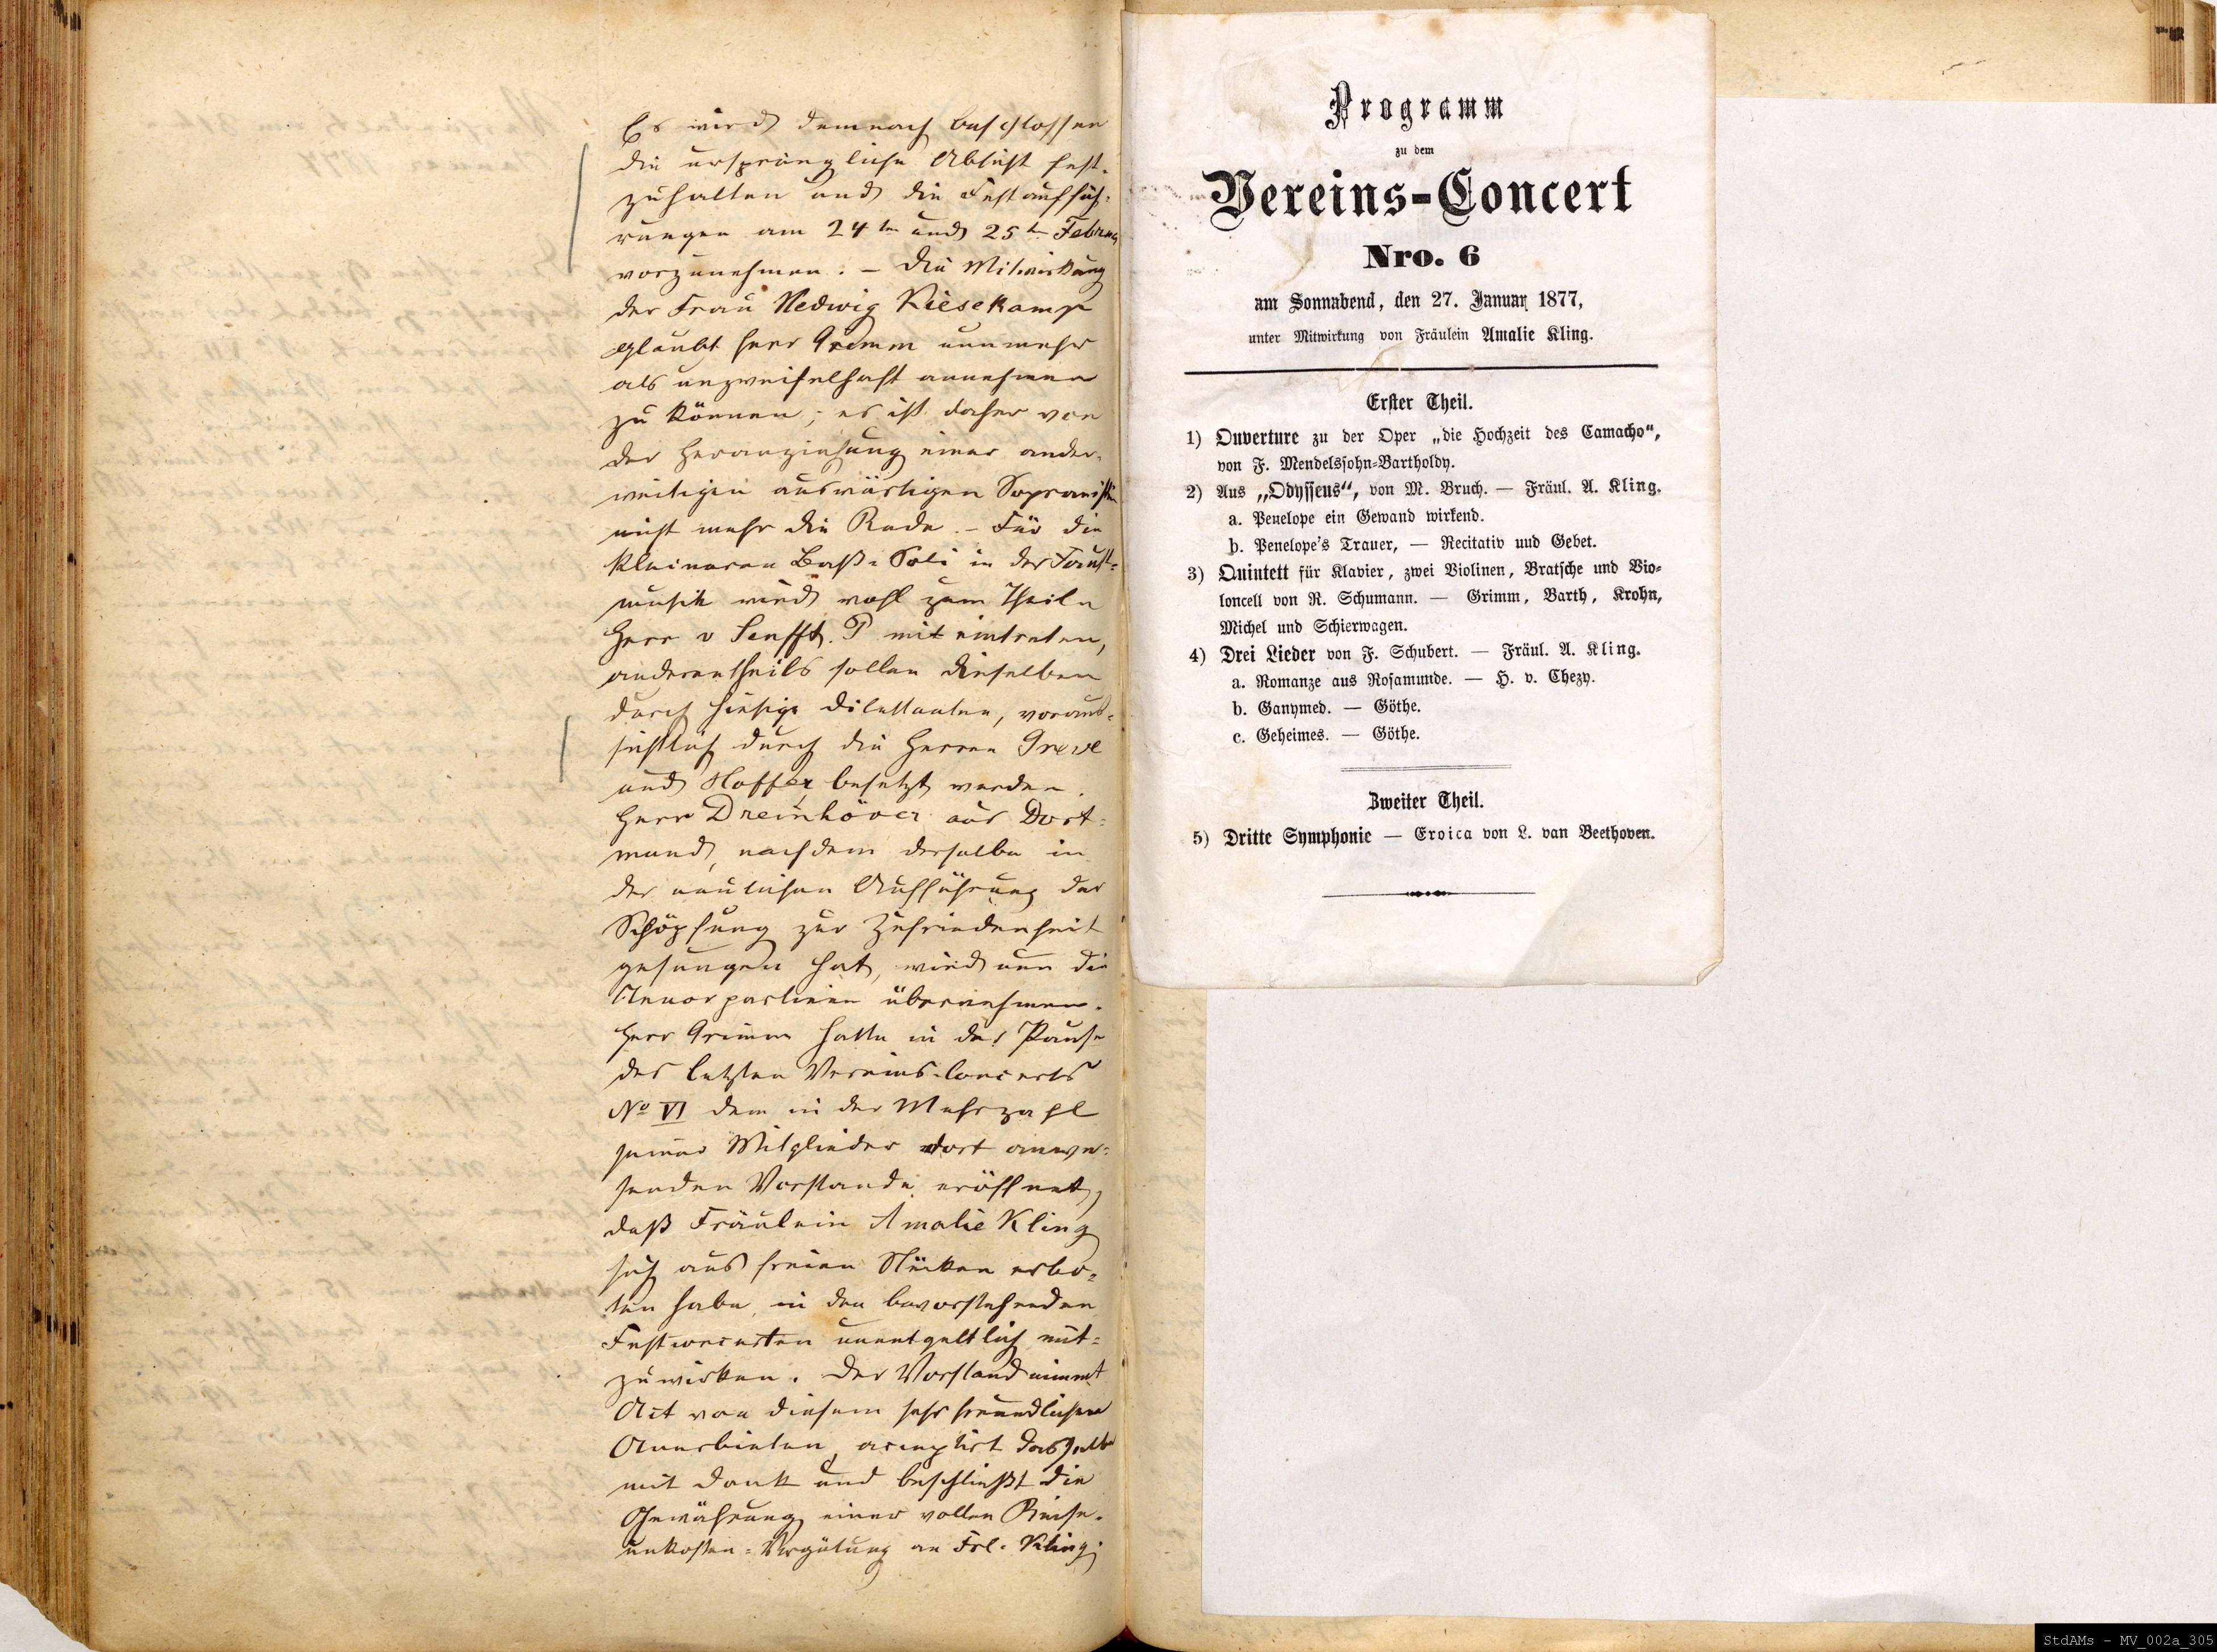 Es wird demnach beschlossen
die ursprüngliche Absicht fest-
zuhalten und die Festauffüh-
rungen am 24ten und 25t Februar
vorzunehmen. – Die Mitwirkung
der Frau Hedwig Kiesekamp
glaubt Herr Grimm nunmehr
als unzweifelhaft annehmen
zu können; es ist daher von
der Heranziehung einer ander-
weitigen auswärtigen Sopranistin
nicht mehr die Rede. – Für die
kleineren Baß-Soli in der Faust-
musik wird wohl zum Theile
Herr v Senfft. P mit eintreten,
anderentheils sollen dieselben
durch hiesige Dilettanten, voraus-
sichtlich durch die Herren Greve
und Hoffer besetzt werden.
Herr Dreinhöver aus Dort-
mund, nachdem derselbe in
der neulichen Aufführung der
Schöpfung zur Zufriedenheit
gesungen hat, wird nun die
Tenorpartieen übernehmen.
Herr Grimm hatte in der Pause
des letzten Vereins-Concerts
No VI dem in der Mehrzahl
seiner Mitglieder dort anwe-
senden Vorstande eröffnet,
daß Fräulein Amalie Kling
sich aus freien Stücken erbo-
ten habe, in den bevorstehenden
Festconcerten unentgeltlich mit-
zuwirken. Der Vorstand nimmt
Act von diesem sehr freundlichen
Anerbieten, acceptirt dasselbe
mit Dank und beschließt die
Gewährung einer vollen Reise-
unkosten-Vergütung an Frl. Kling;
Programm
zu dem
Vereins-Concert
Nro. 6
am Sonnabend, den 27. Januar 1877,
unter Mitwirkung von Fräulein Amalie Kling.
Erster Theil.
1) Ouverture zu der Oper „die Hochzeit des Camacho“,
von F. Mendelssohn-Bartholdy.
2) Aus „Odysseus“, von M. Bruch. — Fräul. A. Kling.
a. Penelope ein Gewand wirkend.
b. Penelope's Trauer, — Recitativ und Gebet.
3) Quintett für Klavier, zwei Violinen, Bratsche und Vio-
loncell von R. Schumann. — Grimm, Barth, Krohn,
Michel und Schierwagen.
4) Drei Lieder von F. Schubert. — Fräul. A. Kling.
a. Romanze aus Rosamunde. — H. v. Chezy.
b. Ganymed. — Göthe.
c. Geheimes. — Göthe.
Zweiter Theil.
5) Dritte Symphonie — Eroica von L. van Beethoven.
StdAMs - MV_002a_305